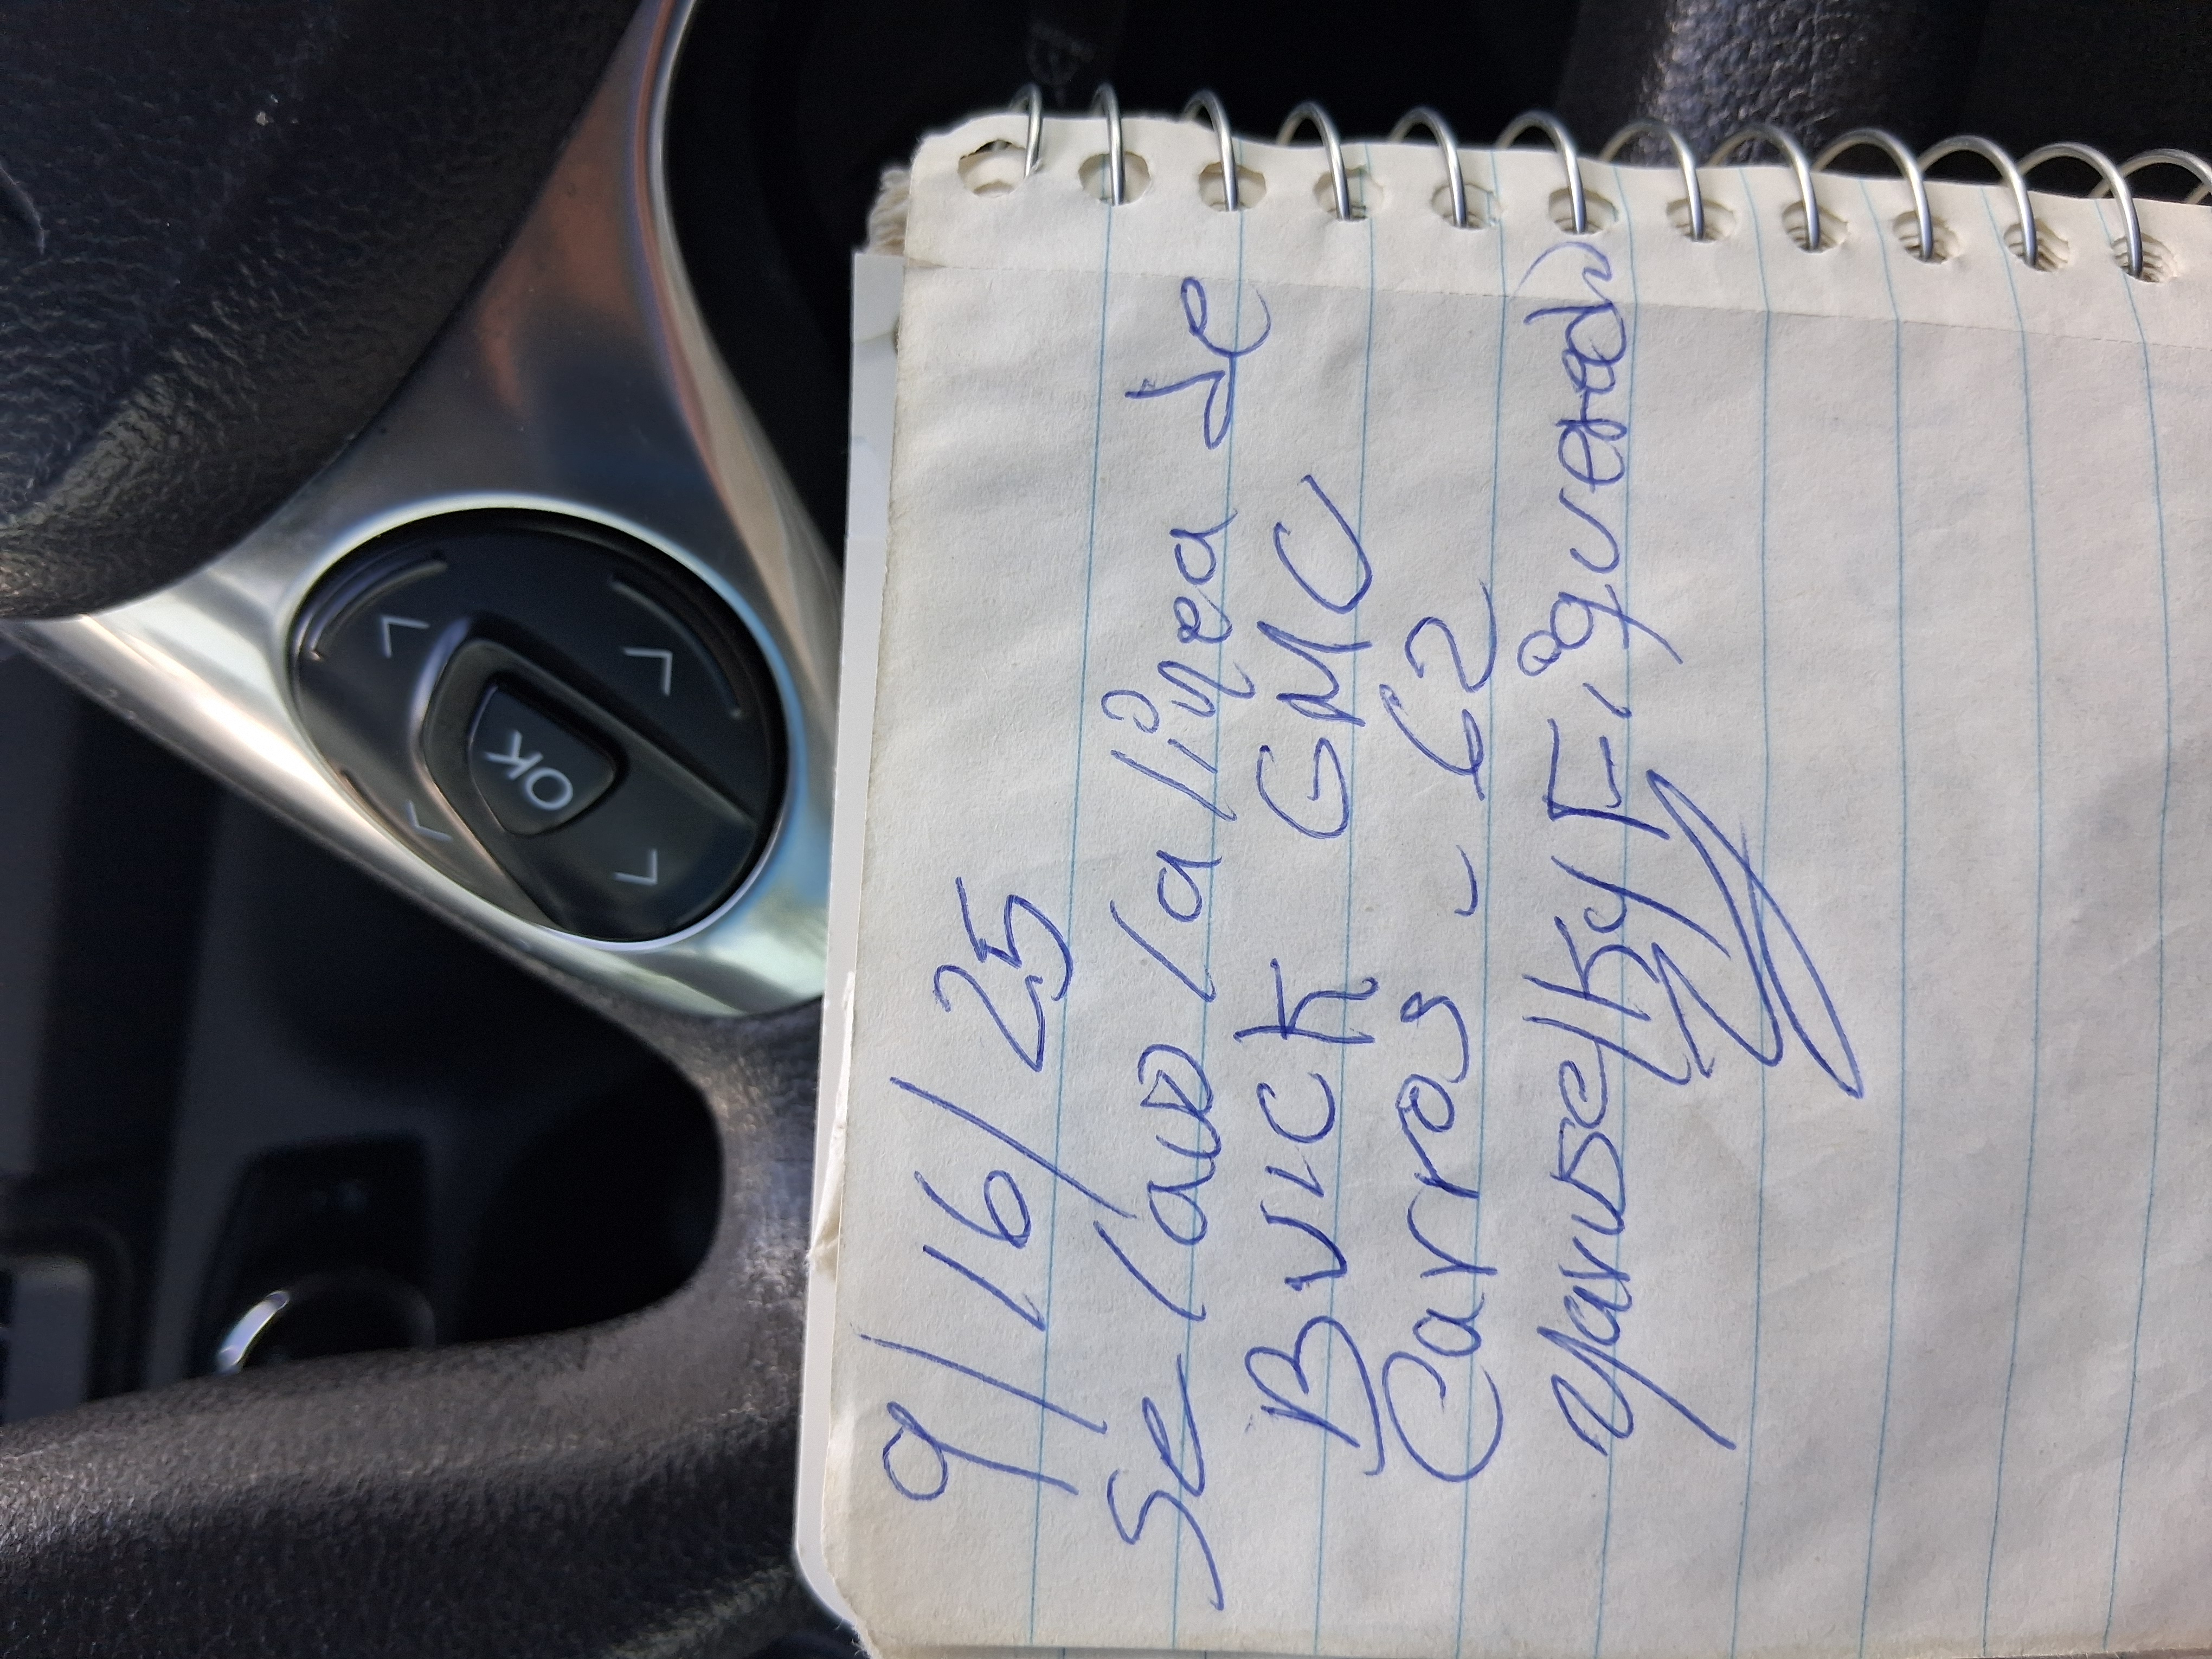 9/16/25
Se lavo la linea de
Buick GMC
Carros - 62
Yaruselky Figueredo
OK